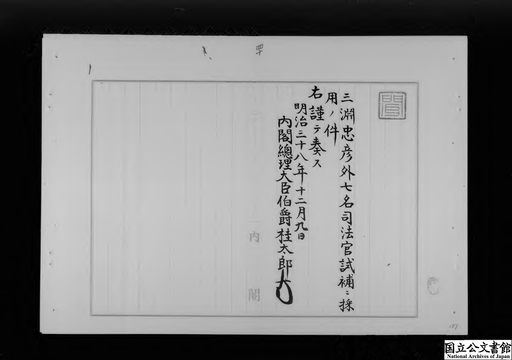 聞
三淵忠彦外七名司法官試補ニ採
用ノ件
右謹テ奏ス
明治三十八年十二月九日
内閣總理大臣伯爵桂太郎
内閣
国立公文書館
National Archives of Japan